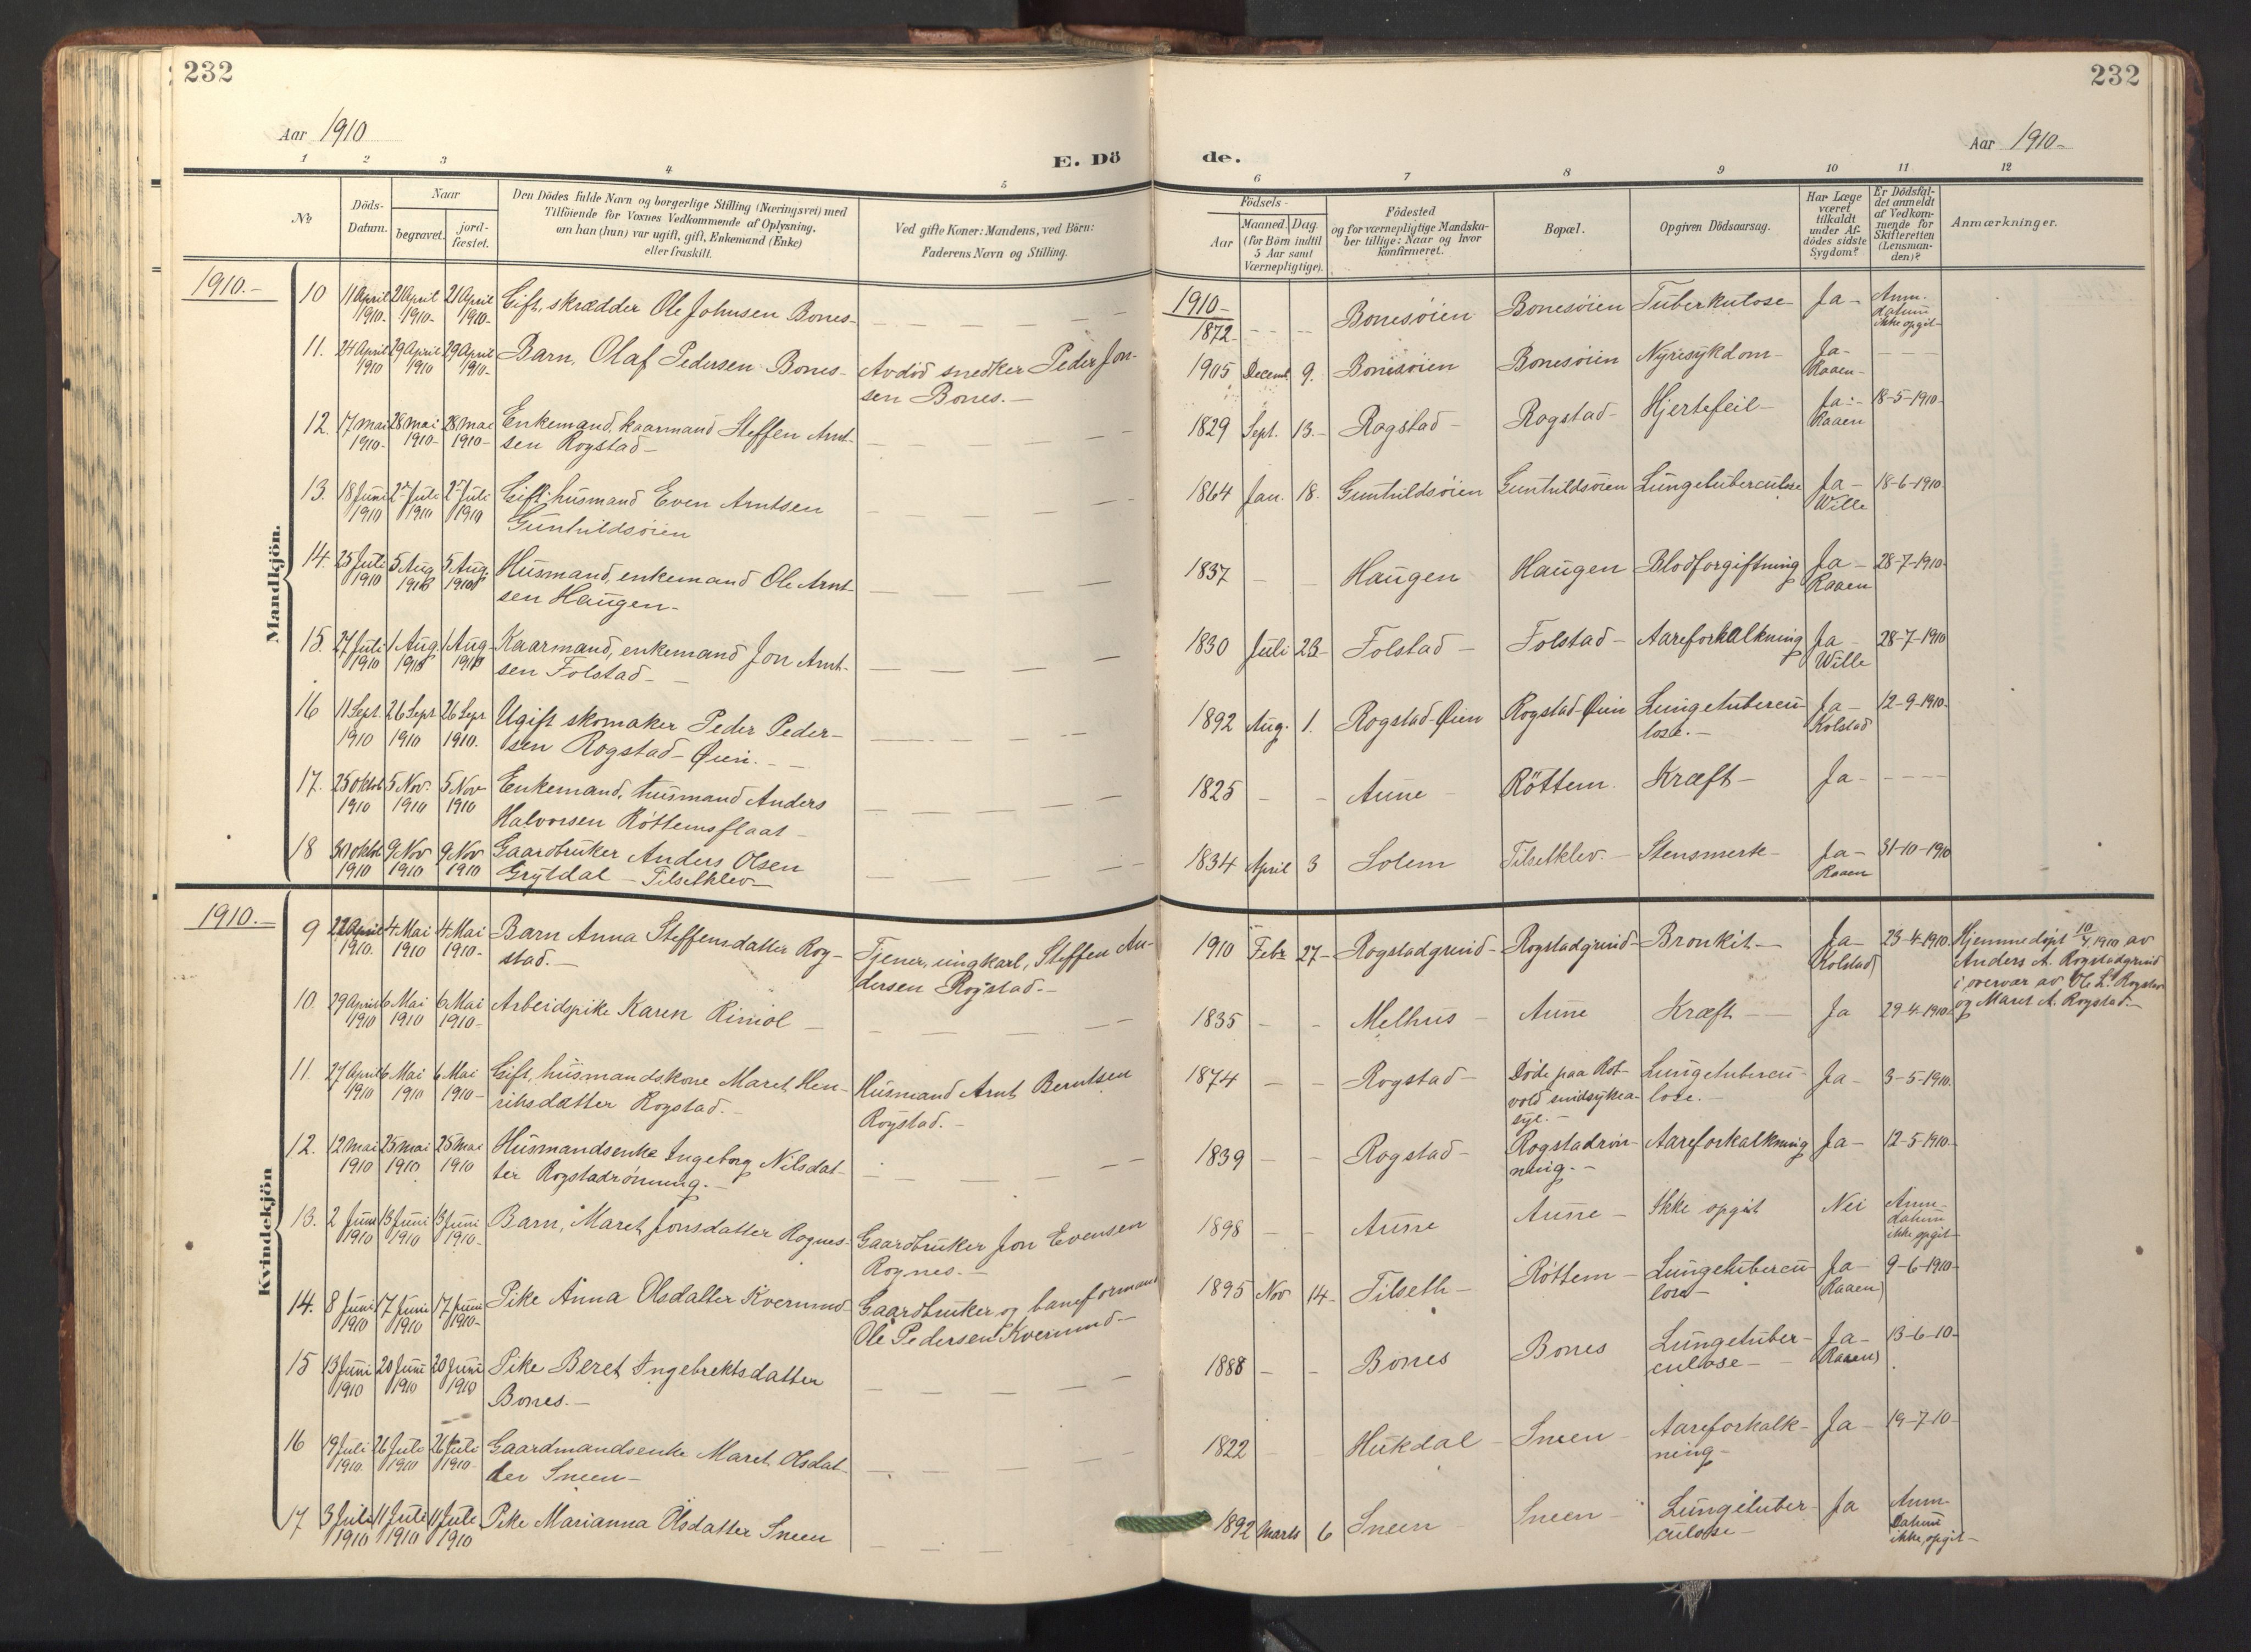 232
232
Aar 1910
Aar 1910-
E. Dö de.
1 2 3 4 5 6 7 8 9 10 11 12
№
Döds-
Datum.
Naar
begravet.
jord-
fæstet.
Den Dödes fulde Navn og borgerlige Stilling (Næringsvei) med
Tilföiende for Voxnes Vedkommende af Oplysning,
om han (hun) var ugift, gift, Enkemand (Enke)
eller fraskilt.
Ved gifte Koner: Mandens, ved Börn:
Faderens Navn og Stilling.
Födsels-
Aar
Maaned. Dag.
(for Börn indtil
5 Aar samt
Værnepligtige).
Födested
og for værnepligtige Mandska-
ber tillige: Naar og hvor
konfirmeret.
Bopæl.
Opgiven Dödsaarsag.
Har Læge
været
tilkaldt
under Af-
dödes sidste
Sygdom?
Er Dödsfal-
det anmeldt
af Vedkom-
mende for
Skifteretten
(Lensman-
den)?
Anmærkninger.
Mandkjön.
1910.-
10 11 April 1910. 21 April 1910- 21 April 1910- Gift, skrædder Ole Johnsen Bones- 1910- 1872- Bonesöien Bonesöien Tuberkulose Ja- Anm. datum ikke opgit-
11. 24 April 1910 29 April 1910 29 April 1910- Barn, Olaf Pedersen Bones- Avdöd snedker Peder Jon-
sen Bones.- 1905 Decemb. 9. Bonesöien Bonesöien Nyresykdom- Ja- Raaen-
12. 17 mai 1910- 28 mai 1910- 28 mai 1910- Enkemand, kaarmand Steffen Arnt-
sen Rogstad- 1829 Sept. 13.- Rogstad- Rogstad- Hjertefeil- Ja- Raaen 18-5-1910-
13. 18 Juni 1910 2n Juli 1910 2n Juli 1910 Gift, husmand Even Arntsen
Gunhildsöien 1864 Jan. 18. Gunhildsöien Gunhildsöien Lungetuberculose Ja- Wille 18-6-1910
14. 25 Juli 1910 5 Aug 1910 5 Aug. 1910 Husmand, enkemand Ole Arnt-
sen Haugen- 1837 Haugen Haugen Blodforgiftning Ja- Raaen 28-7-1910-
15. 27 Juli 1910 1 Aug. 1910 1 Aug. 1910 Kaarmand, enkemand Jon Arnt-
sen Folstad- 1830 Juli 23- Folstad- Folstad- Aareforkalkning Ja- Wille 28-7-1910
16 11 Sept. 1910 26 Sept 1910 26 Sept 1910. Ugift skomaker Peder Peder-
sen Rogstad-Öien.- 1892 Aug. 1. Rogstad-Öien Rogstad-Öien Lungetubercu-
lose.- Ja- Kolstad 12-9-1910-
17. 25 oktob 1910 5 Nov. 1910 5 Nov 1910 Enkemand, husmand Anders
Halvorsen Röttemsflaat- 1825 Aune Röttem. Kræft- Ja-
18 30 oktob 1910 9 Nov 1910 9 Nov 1910 Gaardbruker Anders Olsen
Grytdal - Tilsetklev- 1834 April 3 Solem Tilsetklev.- Stensmerte- Ja- Raaen 31-10-1910
Kvindekjön
1910.-
9 22 April 1910. 4 Mai 1910 4 Mai 1910- Barn Anna Steffensdatter Rog-
stad.- Tjener, ungkarl, Steffen An-
dersen Rogstad.- 1910 Febr 27- Rogstadgrind- Rogstadgrind- Bronkit- Ja- Kolstad 23-4-1910. Hjemmedöpt 10/4 1910 av
Anders A. Rogstadgrind
i overvær av Ole L. Rogstad
og Maret A. Rogstad.-
10. 29 April 1910 6 Mai 1910 6 Mai 1910- Arbeidspike Karen Rimol- 1835 Melhus- Aune Kræft- Ja 29-4-1910
11. 27 April 1910 6 Mai 1910 6 Mai 1910- Gift, husmandskone Maret Hen-
riksdatter Rogstad.- Husmand Arnt Berntsen
Rogstad.- 1874 Rogstad- Döde paa Rot-
vold sindsykea-
syl.- Lungetubercu-
lose.- Ja- 3-5-1910.
12. 12 mai 1910 25 mai 1910 25 mai 1910 Husmandsenke Ingeborg Nilsdat-
ter Rogstadrönning.- 1839 Rogstad- Rogstadrön-
ning.- Aareforkalkning Ja- 12-5-1910-
13. 2 Juni 1910 13 Juni 1910 13 Juni 1910- Barn, Maret Jonsdatter Rognes- Gaardbruker Jon Evensen
Rognes.- 1898 Aune Aune- Ikke opgit Nei Anm- datum ikke opgit-
14. 8 Juni 1910 17 Juni 1910 17 Juni 1910- Pike Anna Olsdatter Kvernmo- Gaardbruker og baneformand
Ole Pedersen Kvernmo- 1895 Nov 14- Tilseth- Röttem- Lungetubercu-
lose- Ja- Raaen 9-6-1910-
15 13 Juni 1910 20 Juni 1910 20 Juni 1910 Pike Beret Ingebrektsdatter
Bones.- 1888 Bones Bones Lungetuber-
culose- Ja- Raaen 13-6-10-
16 19 Juli 1910. 26 Juli 1910 26 Juli 1910- Gaardmandsenke Maret Olsdat-
ter Sneen- 1822 Hukdal- Sneen- Aareforkalk-
ning- Ja- 19-7-10-
17 3 Juli 1910 11 Juli 1910 11 Juli 1910 Pike Marianna Olsdatter Sneen 1892 Marts 6 Sneen Sneen- Lungetuber-
culose- Ja Anm- Datum ikke opgit-